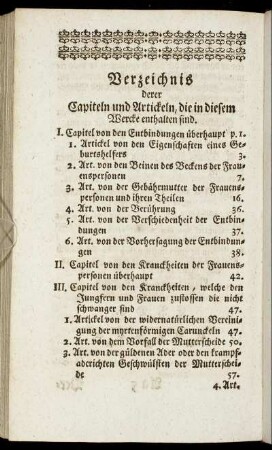 Verzeichnis
derer
Capiteln und Artickeln, die in diesem
Wercke enthalten sind.
I. Capitel von den Entbindungen überhaupt p. 1.
1. Artickel von den Eigenschaften eines Ge-
burtshelfers 3.
2. Art. von den Beinen des Beckens der Frau-
enspersonen 7.
3. Art. von der Gebährmutter der Frauens-
personen und ihren Theilen 16.
4. Art. von der Berührung 36.
5. Art. von der Verschiedenheit der Entbin-
dungen 37.
6. Art. von der Vorhersagung der Entbindun-
gen 38.
II. Capitel von den Kranckheiten der Frauens-
personen überhaupt 42.
III. Capitel von den Kranckheiten, welche den
Jungfern und Frauen zustossen die nicht
schwanger sind 47.
1. Artickel von der widernatürlichen Vereini-
gung der myrtenförmigen Carunckeln 47.
2. Art. von dem Vorfall der Mutterscheide 50.
3. Art. von der güldenen Ader oder den krampf-
aderichten Geschwülsten der Mutterschei-
de 57.
4. Art.